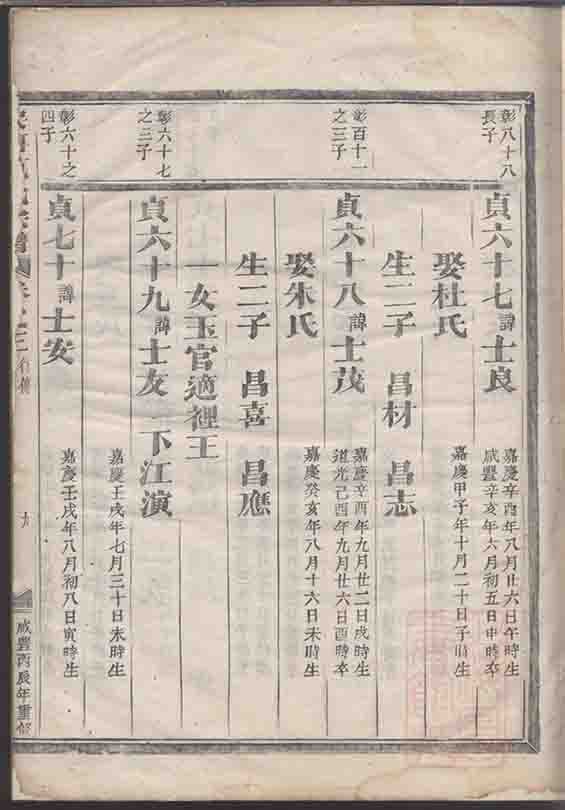 彰八十八
長子
貞六十七諱士良
嘉慶辛酉年八月廿六日午時生
咸豐辛亥年六月初五日申時卒
娶杜氏
嘉慶甲子年十月二十日子時生
生二子 昌材 昌志
彰百十一
之三子
貞六十八諱士茂
嘉慶辛酉年九月廿二日戌時生
道光己酉年九月廿六日酉時卒
娶朱氏
嘉慶癸亥年八月十六日未時生
生二子 昌喜 昌應
一女玉官適裡王
彰六十七
之三子
貞六十九諱士友 下江演
嘉慶壬戌年七月三十日未時生
彰六十之
四子
貞七十諱士安
嘉慶壬戌年八月初八日寅時生
咸豐丙辰年重修